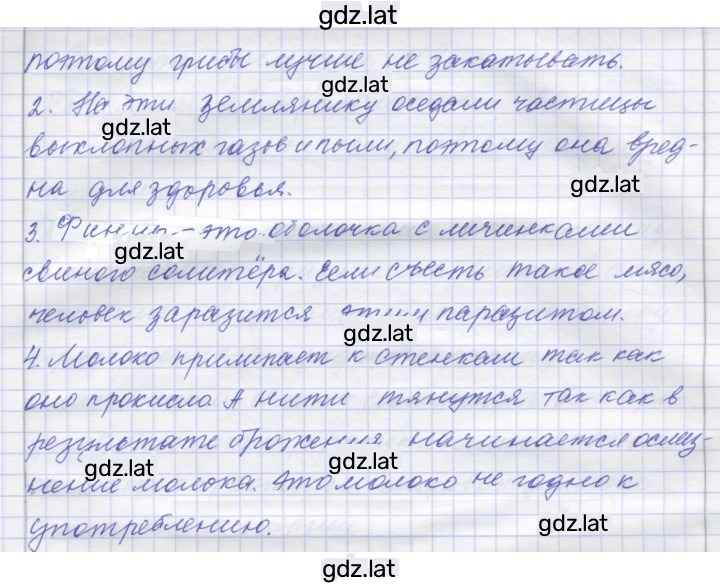 gdz.lat
поэтому грибы лучше не закатывать.
gdz.lat
2. На эти землянику оседали частицы
gdz.lat
выхлопных газов и пыли, поэтому она вред-
на для здоровья.
gdz.lat
3. Финны - это оболочка с личинками
gdz.lat
свиного солитёра. Если съесть такое мясо,
человек заразится этим паразитом.
gdz.lat
4. Молоко прилипает к стенкам так как
оно прокисло. А нити тянутся так как в
результате брожения начинается ослиз-
gdz.lat gdz.lat
нение молока. Это молоко не годно к
употреблению.
gdz.lat
gdz.lat